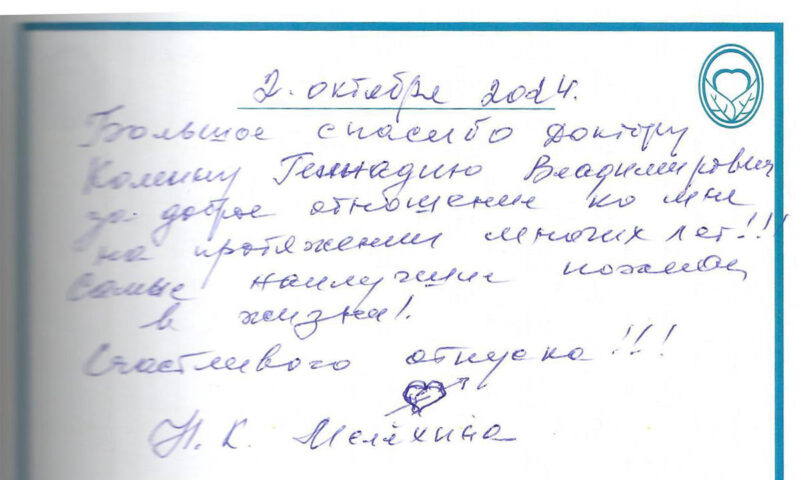 2. октября 2024.
Большое спасибо Доктору
Геннадию Владимирович
за доброе отношение ко мне
на протяжении многих лет!!!
Самые наилучшие пожелан
в жизни!.
Счастливого отпуска!!!
Н. К.